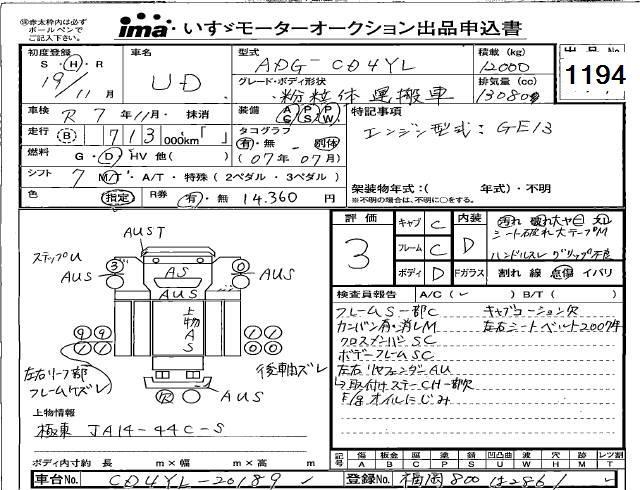 ※赤太枠内は必ず
ボールペンで
ご記入下さい。
ima いすゞモーターオークション出品申込書
出品No.
1194
初度登録 S・H・R
19/11月
車名
UD
型式
ADG-CD4YL
グレード・ボディ形状
粉粒体運搬車
積載 (kg)
12000
排気量 (cc)
13080
車検 R 7年11月・抹消
装備 AG PS PW
特記事項
エンジン型式:GE13
走行 B 713000km「 」
タコグラフ
有・無 - 別体
(07年07月)
燃料 G・D・HV 他( )
シフト 7 M/T・A/T・特殊(2ペダル・3ペダル)
架装物年式:( 年式)・不明
※不明の場合は、不明に○をする。
色 (指定) R券 有・無 14.360 円
評価
3
キャブ C
フレーム C
ボディ D
内装 D
シート破れ大テープM
ハンドルスレ グリップ不良
Fガラス 割れ 線 点傷 イバリ
AUST
ステップU
AUS
3
0
AS
AUS
AUS
上物AS
9 9
1 1
左右リーフ部
フレームサズレ
後軸ズレ
欠
AUS
検査員報告 A/C(✓) B/T( )
フレームS一部C
カンバン有・消しM
クロスメンバSC
ボデーフレームSC
左右リヤフェンダーAU
↳取付けステーCH一部欠
E/Gオイルにじみ
キャブコーション欠
左右シートベルト2007年
上物情報
極東 JA14-44C-S
ボディ内寸約 長 m×幅 m×高 m
記号 傷A 板金B 腐C 塗P 錆S UT割 凹凸曲U 波W 穴H 跡M レツ割T
車台No. CD4YL-20189
登録No. 福岡800は2861